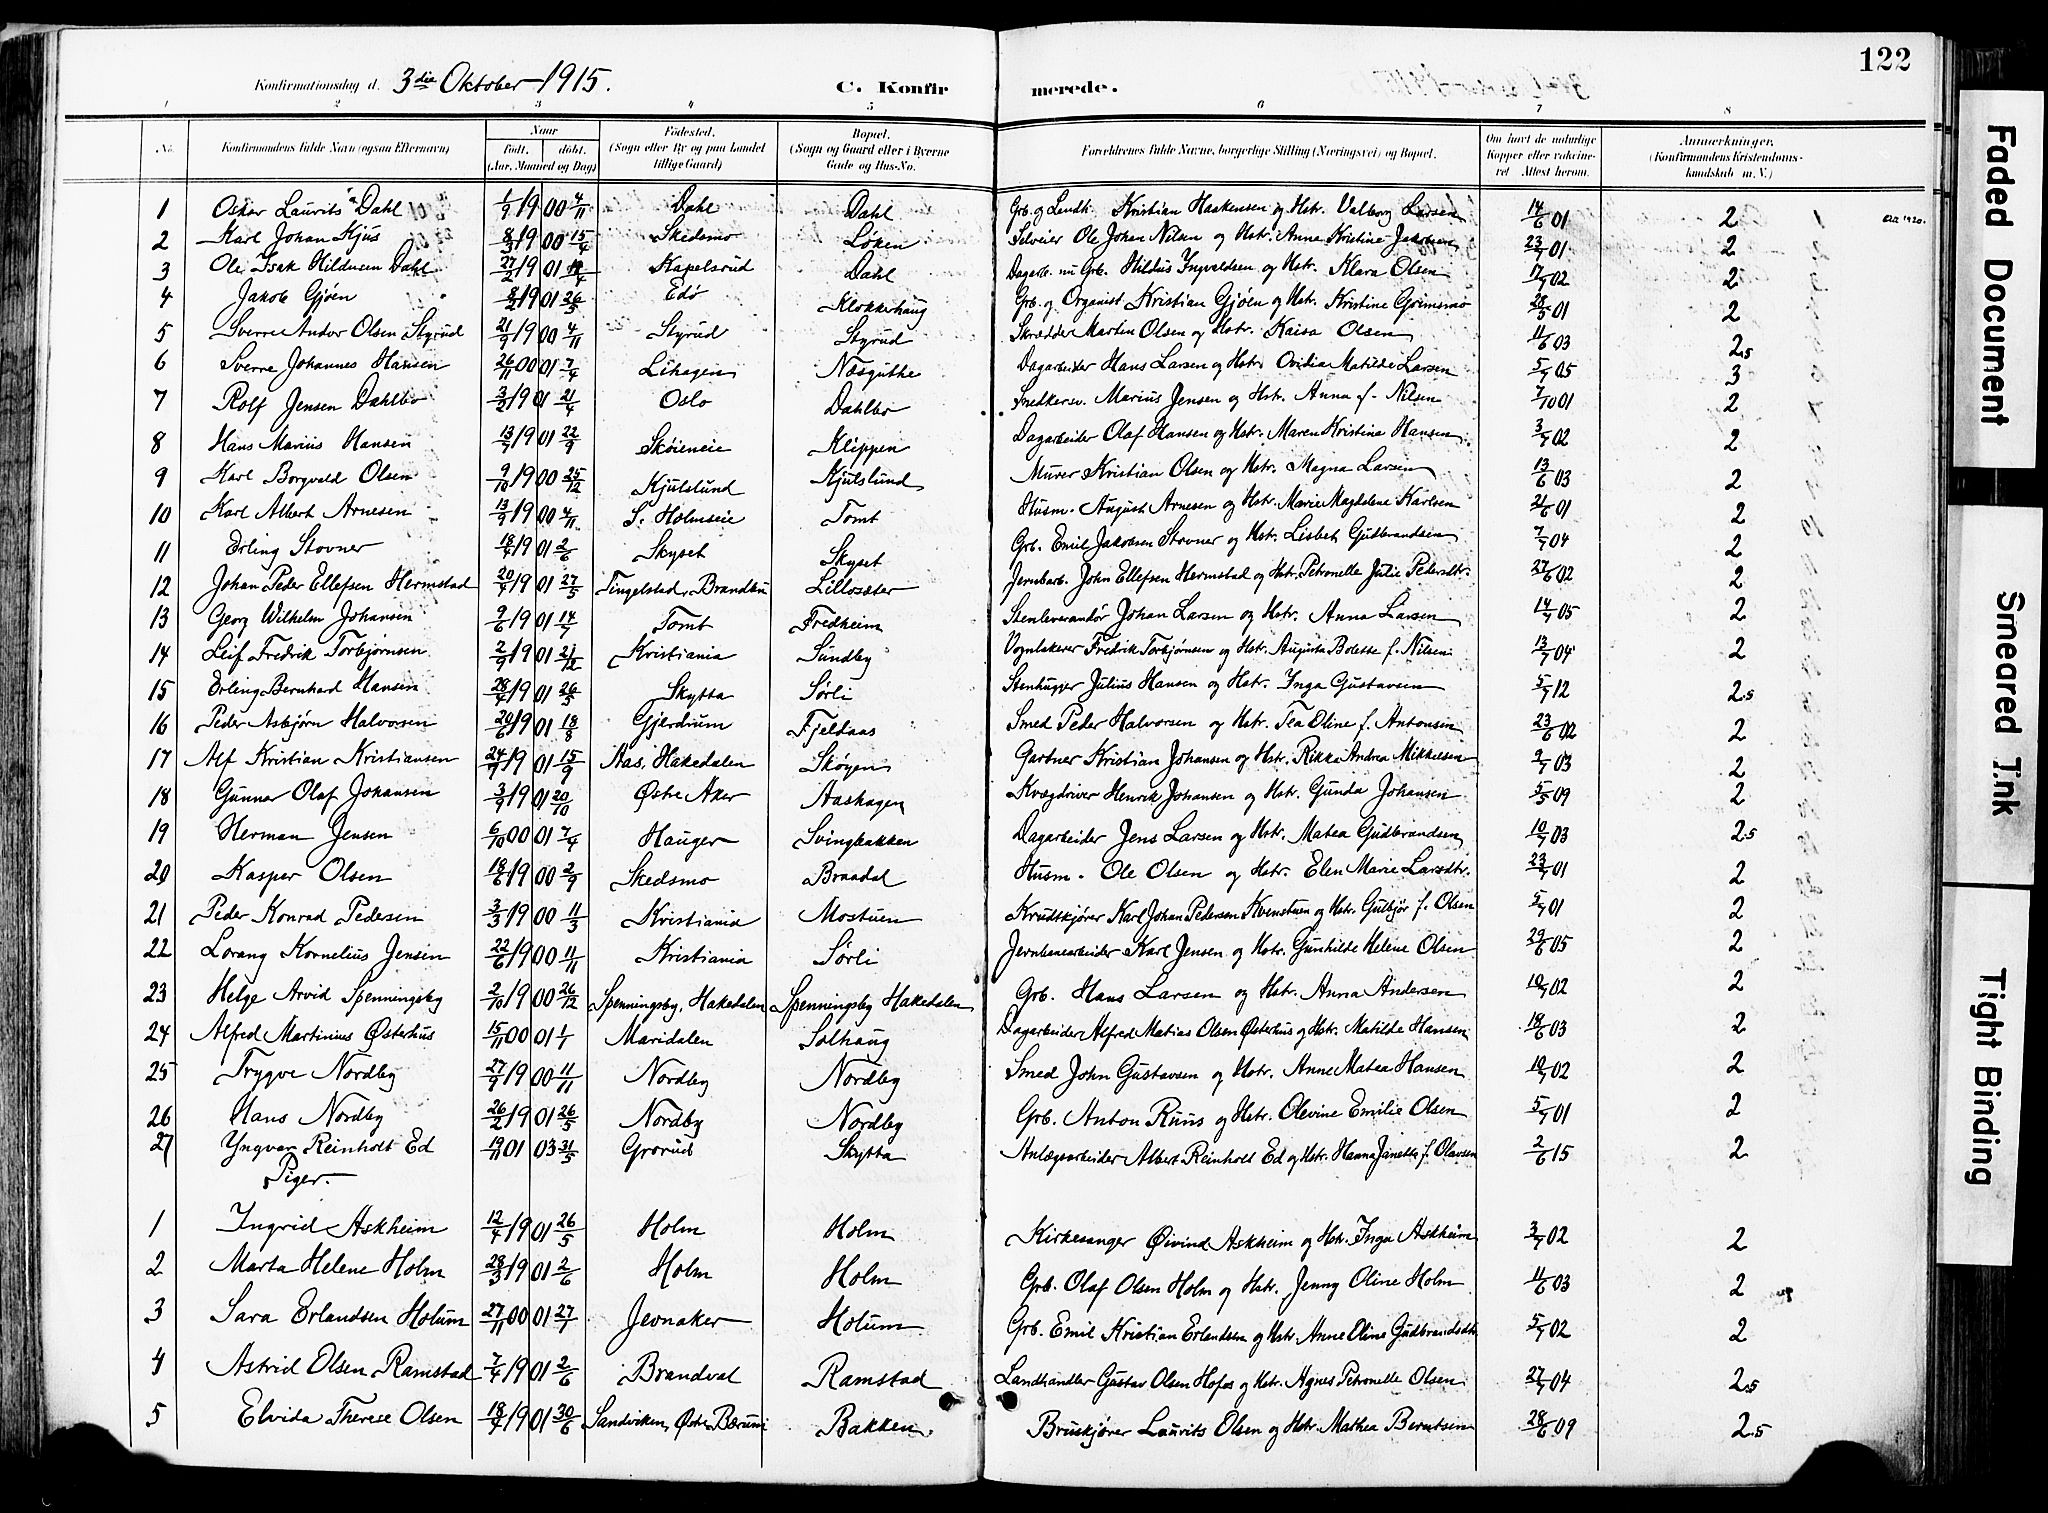 122
Konfirmationsdag d. 3die Oktober 1915. C. Konfirmerede.
1 2 3 4 5 6 7 8
No. Konfirmandens fulde Navn (ogsaa Efternavn) Naar Født. døbt. (Aar, Maaned og Dag) Fødested. (Sogn eller By og paa Landet tillige Gaard) Bopæl. (Sogn og Gaard eller i Byerne Gade og Hus-No. Forældrenes fulde Navne, borgerlige Stilling (Næringsvei) og Bopæl. Om havt de naturlige Kopper eller vaccineret Attest herom. Anmærkninger. (Konfirmandens Kristendomskundskab m. V.)
1 Oskar Laurits Dahl 1/9 1900 4/11 Dahl Dahl Grb. og Landh. Kristian Haakensen og Hstr. Valborg Larsen 14/6 01 2
2 Karl Johan Kjus 8/3 1900 15/4 Skedsmo Løken Selveier Ole Johan Nilsen og Hstr. Anne Kristine Jakobsen 23/7 01 2
3 Ole Isak Hildusen Dahl 27/2 1901 Kapelsrud Dahl Dagarb. nu Grb. Hildus Ingvaldsen og Hstr. Klara Olsen 17/7 02 2
4 Jakob Gjøen 8/2 1901 26/5 Edö Klokkerhaug Grb. og Organist Kristian Gjøen og Hstr. Kristine Grimsmo 28/5 01 2
5 Sverre Andor Olsen Styrud 21/9 1900 4/11 Styrud Styrud Skrædder Marten Olsen og Hstr. Kaisa Olsen 11/6 03 2.5
6 Sverre Johannes Hansen 26/11 00 01 7/4 Lihagen Næsguthe Dagarbeider Hans Larsen og Hstr. Ovidia Matilde Larsen 5/7 05 3
7 Rolf Jensen Dahlbo 3/2 1901 21/4 Oslo Dahlbo Snedkersv. Marius Jensen og Hstr. Anna f. Nilsen 7/10 01 2
8 Hans Marius Hansen 13/7 1901 22/9 Skøieneie Klippen Dagarbeider Olaf Hansen og Hstr. Maren Kristina Hansen 3/7 02 2
9 Karl Borgvald Olsen 9/10 1900 25/12 Kjulslund Kjulslund Murer Kristian Olsen og Hstr. Magna Larsen 13/6 03 2
10 Karl Albert Arnesen 13/9 1900 4/11 S. Holmseie Tomt Husm. August Arnesen og Hstr. Marie Magdalene Karlsen 21/6 01 2
11 Erling Stovner 18/4 1901 2/6 Skyset Skyset Grb. Emil Jakobsen Stovner og Hstr. Lisbet Gudbrandsen 7/7 04 2
12 Johan Peder Ellefsen Hermstad 20/4 1901 27/5 Tingelstad, Brandbu Lillosæter Jernbarb. John Ellefsen Hermstad og Hstr. Petronelle Julie Pedersdtr. 27/6 02 2
13 Georg Wilhelm Johansen 9/6 1901 14/7 Tomt Fredheim Stenleverandør Johan Larsen og Hstr. Anna Larsen 14/7 05 2
14 Leif Fredrik Torbjørnsen 2/9 1901 21/12 Kristiania Sundby Vognlakerer Fredrik Torbjørnsen og Hstr. Augusta Bolette f. Nilsen 13/7 04 2
15 Erling Bernhard Hansen 28/4 1901 26/5 Skytta Sørli Stenhugger Julius Hansen og Hstr. Inga Gustavsen 5/7 12 2.5
16 Peder Asbjørn Halvorsen 20/6 1901 18/8 Gjerdrum Fjeldaas Smed Peder Halvorsen og Hstr. Tea Oline f. Antonsen 23/6 02 2
17 Alf Kristian Kristiansen 24/7 1901 15/9 Aas, Hakedalen Skøyen Gartner Kristian Johansen og Hstr. Rikka Andrea Mikkelsen 9/7 03 2
18 Gunnar Olaf Johansen 3/9 1901 20/10 Østre Aker Aashagen Kvægdriver Henrik Johansen og Hstr. Gunda Johansen 5/5 09 2
19 Herman Jensen 6/10 00 01 7/4 Hauger Svingbakken Dagarbeider Jens Larsen og Hstr. Matea Gudbrandsen 10/7 03 2.5
20 Kasper Olsen 18/6 1900 2/9 Skedsmo Braadal Husm. Ole Olsen og Hstr. Elen Marie Larsdtr. 23/7 01 2
21 Peder Konrad Pedersen 3/3 1900 11/3 Kristiania Mostuen Krudtkjører Karl Johan Pedersen Kvernstuen og Hstr. Gulbjør f. Olsen 5/7 01 2
22 Lorang Kornelius Jensen 22/6 1900 11/11 Kristiania Sørli Jernbanearbeider Karl Jensen og Hstr. Gunhilde Helene Olsen 29/6 05 2
23 Helge Arvid Spenningsby 2/10 1900 26/12 Spenningsby, Hakedalen Spenningsby Hakedalen Grb. Hans Larsen og Hstr. Anna Andersen 10/7 02 2
24 Alfred Martinius Østerhus 15/11 00 01 1/1 Maridalen Solhaug Dagarbeider Alfred Matias Olsen Østerhus og Hstr. Matilde Hansen 18/6 03 2
25 Trygve Nordby 27/9 1900 11/11 Nordby Nordby Smed John Gustavsen og Hstr. Anne Matea Hansen 10/7 02 2
26 Hans Nordby 26/2 1901 26/5 Nordby Nordby Grb. Anton Ruus og Hstr. Olevine Emilie Olsen 5/7 01 2
27 Yngvar Reinholt Ed 19/11 01 03 31/5 Grorud Skytta Anlægsarbeider Albert Reinholt Ed og Hstr. Hanna Janette f. Olavsen 2/6 15 2
Piger.
1 Ingrid Askheim 12/4 1901 26/5 Holm Holm Kirkesanger Øivind Askheim og Hstr. Inga Askheim 3/7 02 2
2 Marta Helene Holm 28/3 1901 2/6 Holm Holm Grb. Olaf Olsen Holm og Hstr. Jenny Oline Holm 11/6 03 2
3 Sara Erlandsen Holum 27/11 00 01 27/1 Jevnaker Holum Grb. Emil Kristian Erlandsen og Hstr. Anne Oline Gudbrandsdtr 5/7 02 2
4 Astrid Olsen Ramstad 7/4 1901 2/6 Brandval Ramstad Landhandler Gustav Olsen Hofos og Hstr. Agnes Petronelle Olsen 27/7 04 2.5
5 Elvida Therese Olsen 18/4 1901 30/6 Sandviken, Østre Bærum Bakken Bruskjører Laurits Olsen og Hstr. Mathea Berntsen 28/6 09 2.5
Faded Document
Smeared Ink
Tight Binding